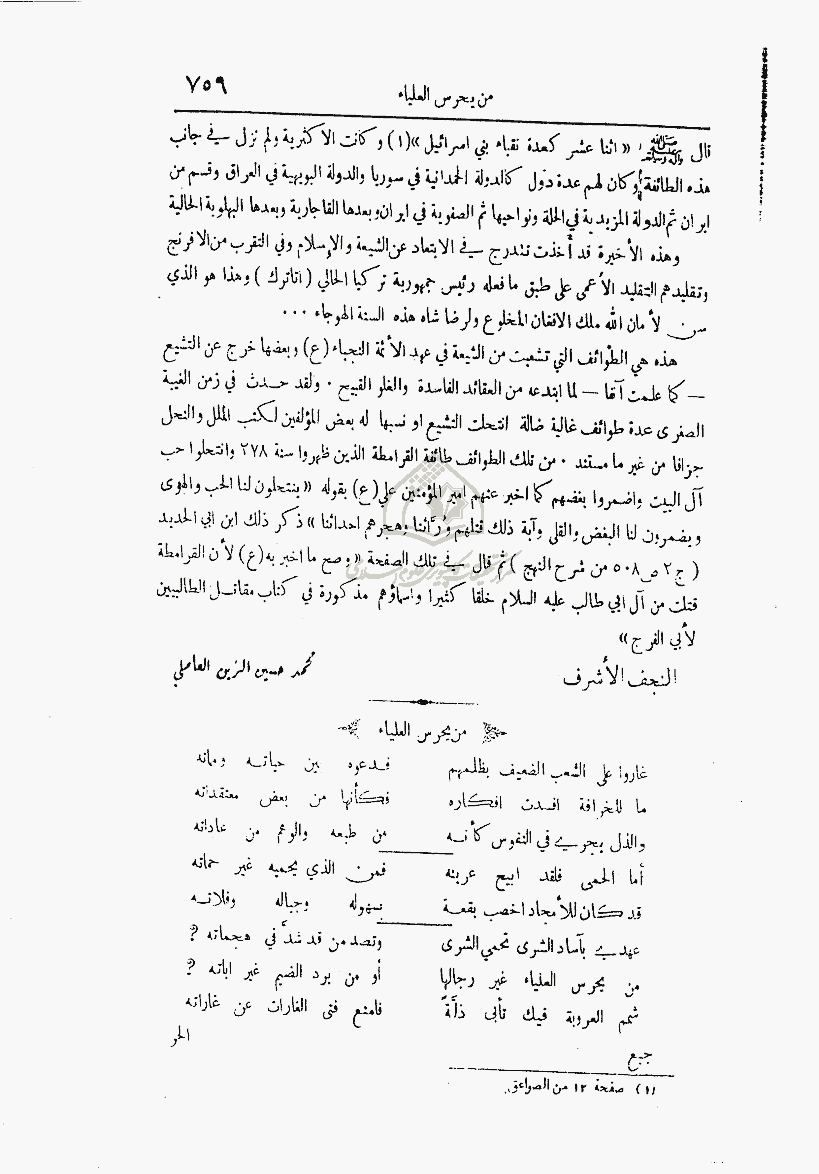 من يحرس العلياء ٧٥٩
قال ﷺ « اثنا عشر كعدة نقباء بني اسرائيل »(١) وكانت الأكثرية ولم تزل في جانب
هذه الطائفة وكان لهم عدة دول كالدولة الحمدانية في سوريا والدولة البويهية في العراق وقسم من
ايران ثم الدولة المزيدية في الحلة ونواحيها ثم الصفوية في ايران وبعدها القاجارية وبعدها البهلوية الحالية
وهذه الأخيرة قد أخذت تتدرج في الابتعاد عن الشيعة والإسلام وفي التقرب من الافرنج
وتقليدهم التقليد الأعمى على طبق ما فعله رئيس جمهورية تركيا الحالي ( اتاترك ) وهذا هو الذي
سن لأمان الله ملك الافغان المخلوع ولرضا شاه هذه السنة الهوجاء ٠٠٠
هذه هي الطوائف التي تشعبت من الشيعة في عهد الأئمة النجباء (ع) وبعضها خرج عن التشيع
— كما علمت آنفا — لما ابتدعه من العقائد الفاسدة والغلو القبيح ٠ ولقد حدث في زمن الغيبة
الصغرى عدة طوائف غالية ضالة انتحلت التشيع او نسبها له بعض المؤلفين لكتب الملل والنحل
جزافا من غير ما مستند ٠ من تلك الطوائف طائفة القرامطة الذين ظهروا سنة ٢٧٨ وانتحلوا حب
آل البيت واضمروا بغضهم كما اخبر عنهم امير المؤمنين علي (ع) بقوله « ينتحلون لنا الحب والهوى
ويضمرون لنا البغض والقلى وآية ذلك قتلهم ورّاثنا وهجرهم احداثنا » ذكر ذلك ابن ابي الحديد
( ج ٢ ص ٥٠٨ من شرح النهج ) ثم قال في تلك الصفحة « وصح ما اخبر به (ع) لأن القرامطة
قتلت من آل ابي طالب عليه السلام خلقا كثيرا واسماؤهم مذكورة في كتاب مقاتل الطالبيين
لأبي الفرج »
النجف الأشرف محمد حسين الزين العاملي
من يحرس العلياء
غاروا على الشعب الضعيف بظلمهم فدعوه بين حياته ومماته
ما للخرافة افسدت افكاره فكأنها من بعض معتقداته
والذل يجري في النفوس كأنه من طبعه والوهم من عاداته
أما الحمى فلقد ابيح عرينه فمن الذي يحميه غير حماته
قد كان للأمجاد اخصب بقعة سهوله وجباله وفلاته
عهدي بآساد الشرى تحمي الشرى وتصد من قد شدَّ في هجماته ؟
من يحرس العلياء غير رجالها أو من يرد الضيم غير اباته ؟
شمم العروبة فيك تأبى ذلّةً فامنع فتى الغارات عن غاراته
جبع الحر
(١) صفحة ١٢ من الصواعق